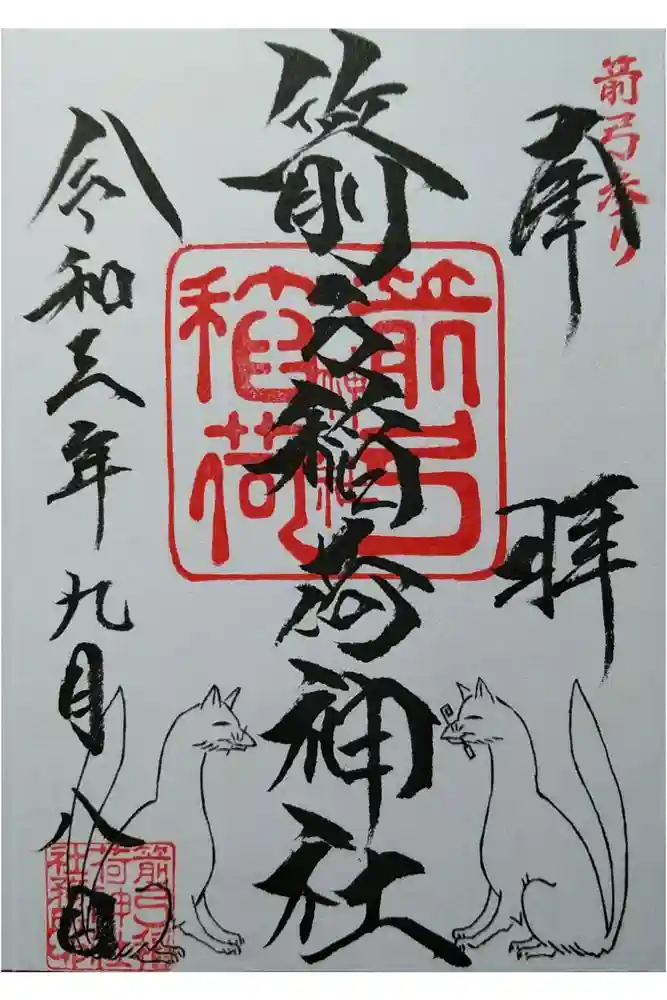 箭弓参り
奉拝
箭弓稲荷神社
箭弓稲荷神社
令和三年九月八日